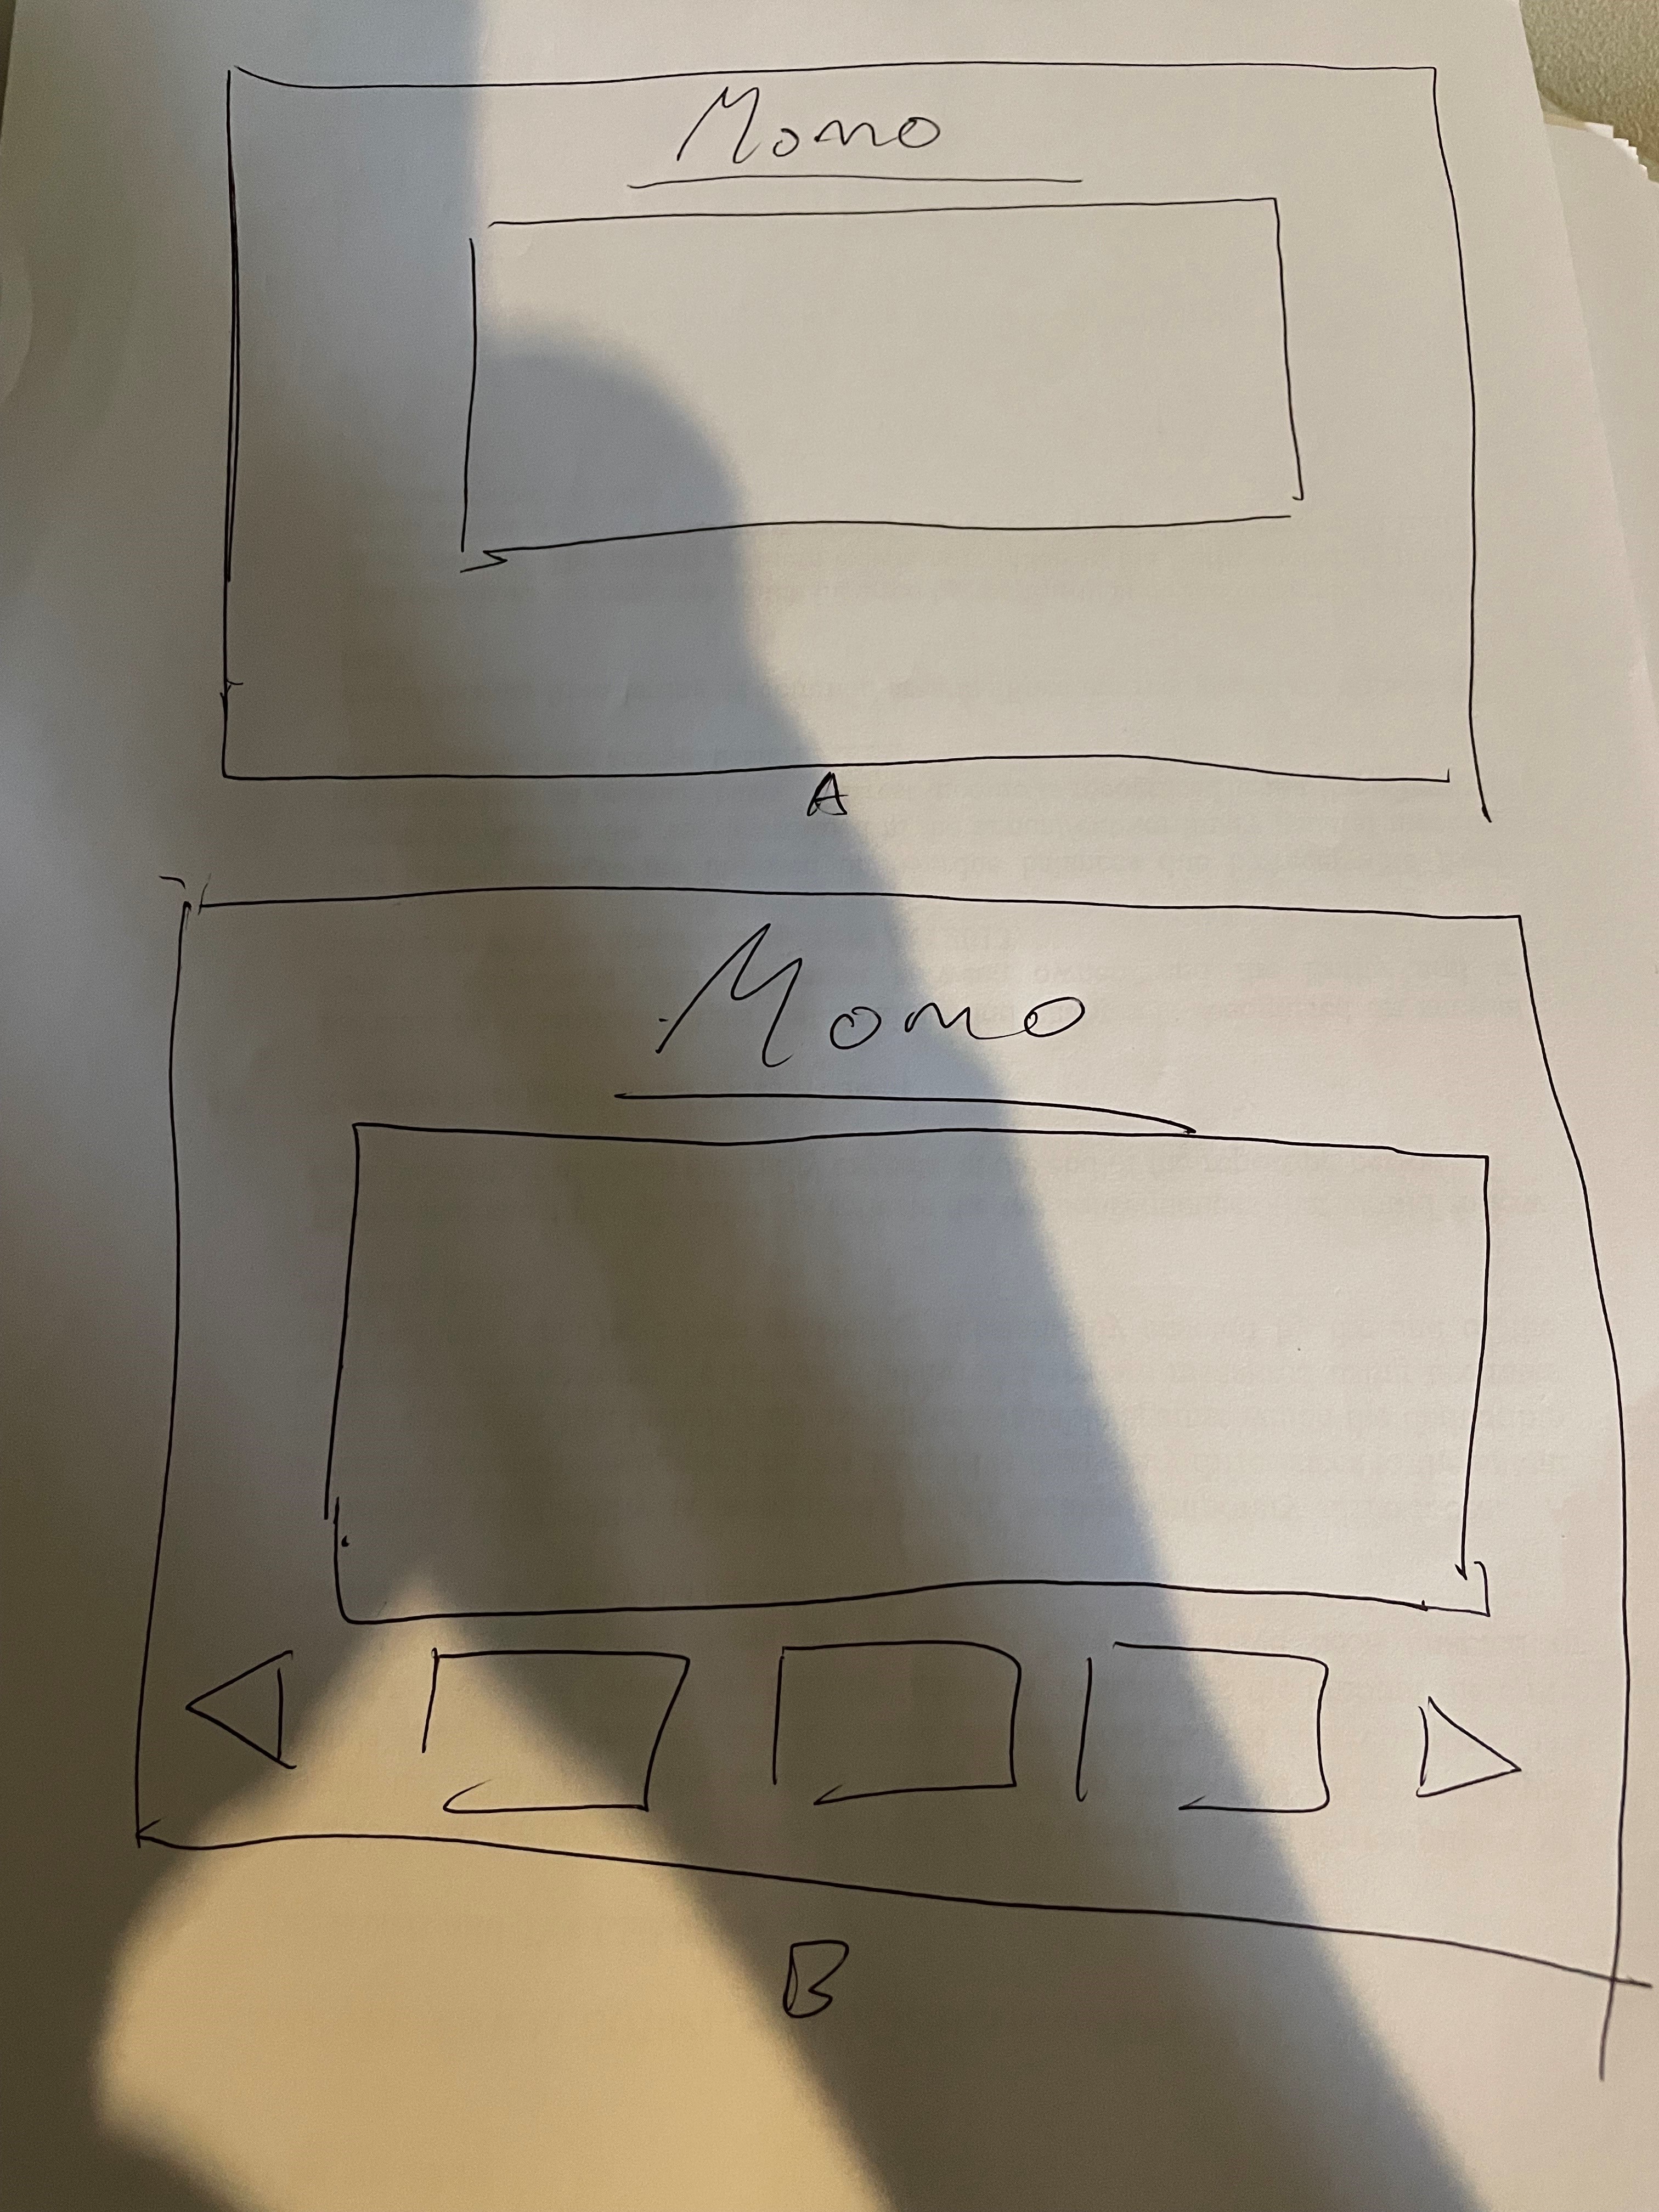 Momo
A
Momo
B